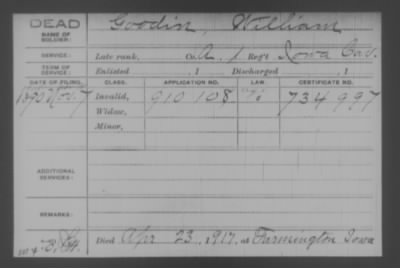 DEAD
NAME OF SOLDIER: Goodin, William
SERVICE: Late rank, Co. A, 1 Reg't Iowa Cav.
TERM OF SERVICE: Enlisted , 1 Discharged , 1
DATE OF FILING. CLASS. APPLICATION NO. LAW. CERTIFICATE NO.
1890 Nov. 7 Invalid, 910 108 734 997
Widow,
Minor,
ADDITIONAL SERVICES:
REMARKS:
Died Apr 23, 1917, at Farmington Iowa